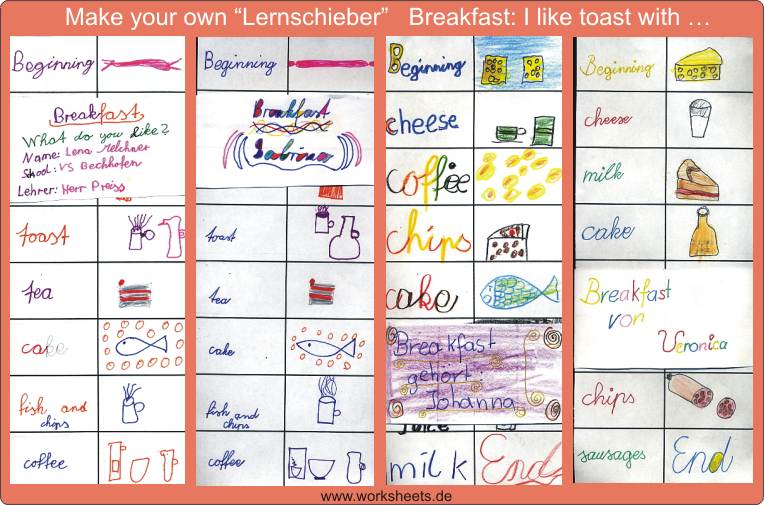 Make your own “Lernschieber” Breakfast: I like toast with …
Beginning
Breakfast
What do you like?
Name: Lena Melchner
School: VS Bechhofen
Lehrer: Herr Preiss
toast
tea
cake
fish and
chips
coffee
Beginning
Breakfast
Sabrina
toast
tea
cake
fish and
chips
coffee
Beginning
cheese
coffee
chips
cake
Breakfast
gehört
Johanna
juice
milk
End
Beginning
cheese
milk
cake
Breakfast
von
Veronica
chips
sausages
End
www.worksheets.de